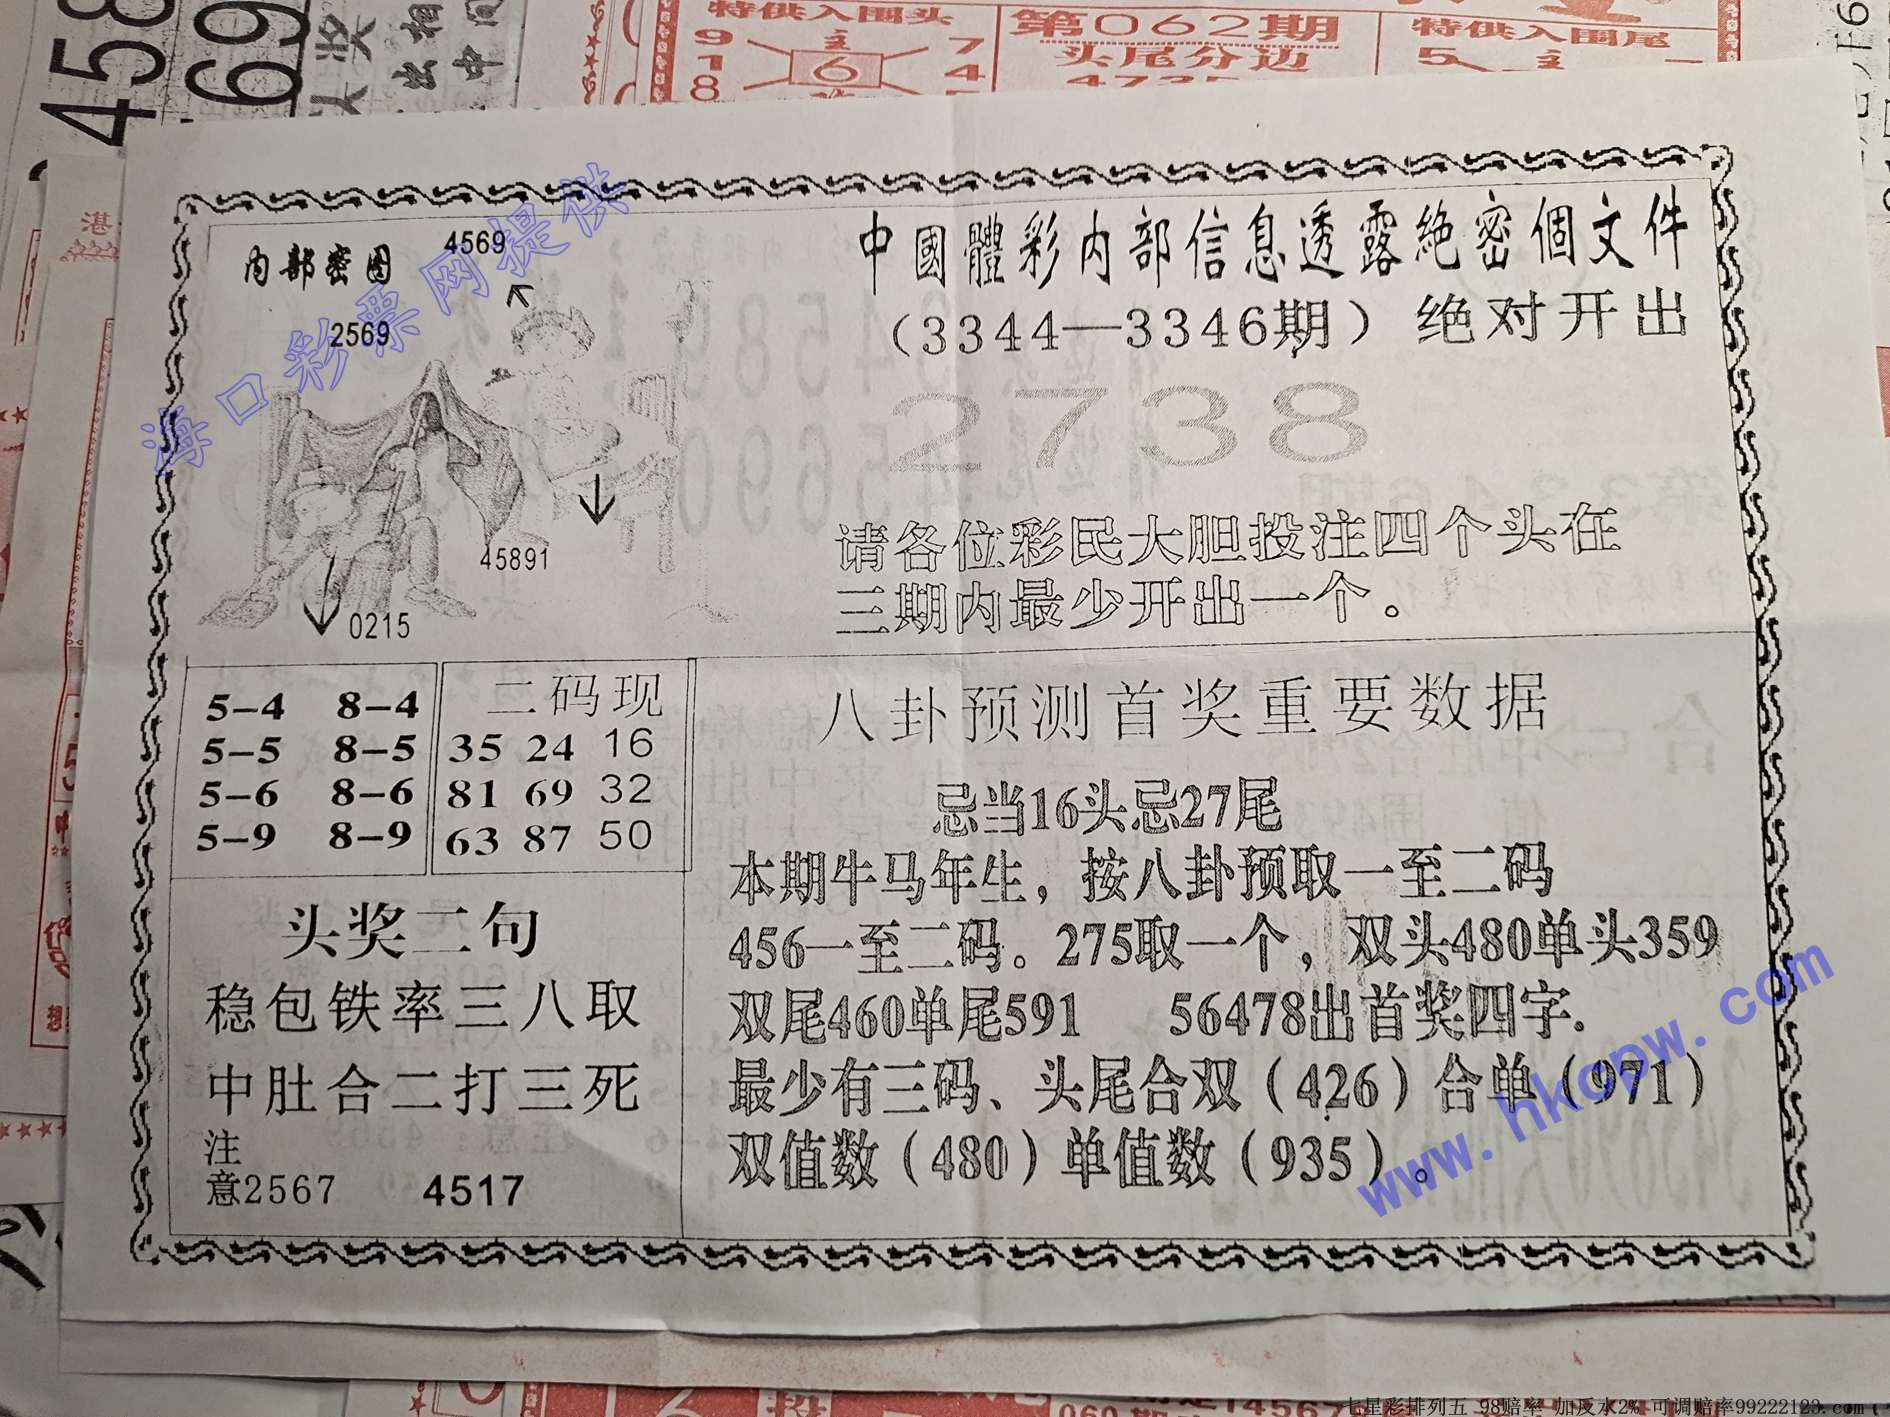 特供入围头
第062期
特供入围尾
头尾分边
9
1
8
6
7
4
5
458
69
内部密图
4569
2569
45891
0215
海口彩票网提供
中國體彩内部信息透露絶密個文件
（3344—3346期）绝对开出
2738
请各位彩民大胆投注四个头在
三期内最少开出一个。
5-4 8-4
5-5 8-5
5-6 8-6
5-9 8-9
二码现
35 24 16
81 69 32
63 87 50
头奖二句
稳包铁率三八取
中肚合二打三死
注
意2567 4517
八卦预测首奖重要数据
忌当16头忌27尾
本期牛马年生，按八卦预取一至二码
456一至二码。275取一个，双头480单头359
双尾460单尾591 56478出首奖四字.
最少有三码、头尾合双（426）合单（971）
双值数（480）单值数（935）。
www.hkcpw.com
七星彩排列五 98赔率 加反水2% 可调赔率99222123.com